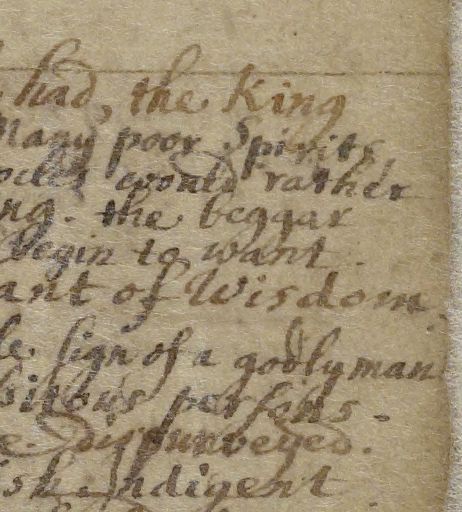 had, the King
Many poor Spirits,
would rather
ng. the beggar
begin to want.
ant of Wisdom.
le sign of a godly man
bitous persons.
dispurveyed.
ish indigent